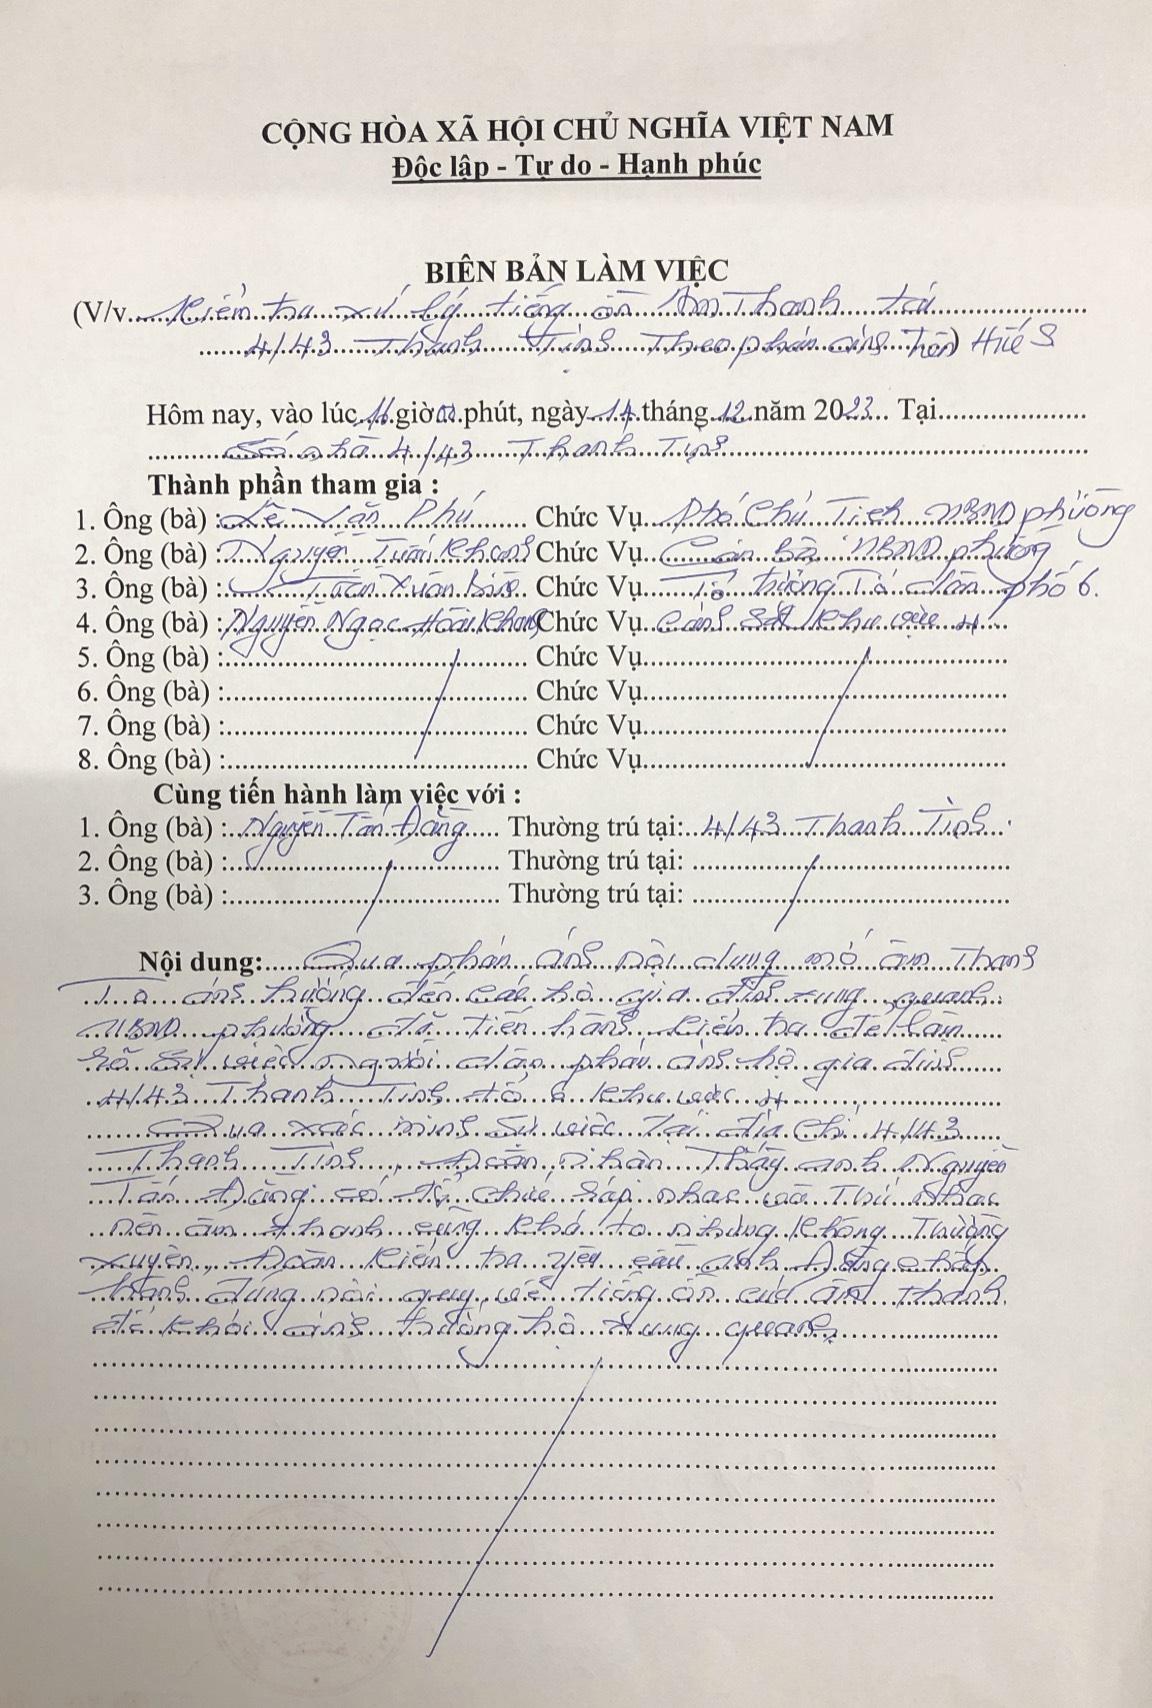 CỘNG HÒA XÃ HỘI CHỦ NGHĨA VIỆT NAM
Độc lập - Tự do - Hạnh phúc
BIÊN BẢN LÀM VIỆC
(V/v Kiểm tra xử lý tiếng ồn Âm Thanh tại
4/43 Thanh Tịnh Theo phản ánh Trên) Huế S
Hôm nay, vào lúc 16 giờ 00 phút, ngày 14 tháng 12 năm 2023 Tại
Số nhà 4/43 Thanh Tịnh
Thành phần tham gia :
1. Ông (bà) : Lê Văn Phú Chức Vụ Phó Chủ Tịch UBND phường
2. Ông (bà) : Nguyễn Tuấn Khanh Chức Vụ Cán bộ UBND phường
3. Ông (bà) : Trần Xuân Chức Vụ Tổ trưởng Tổ dân phố 6.
4. Ông (bà) : Nguyễn Ngọc Hoài Khang Chức Vụ Cảnh sát khu vực 4
5. Ông (bà) : Chức Vụ
6. Ông (bà) : Chức Vụ
7. Ông (bà) : Chức Vụ
8. Ông (bà) : Chức Vụ
Cùng tiến hành làm việc với :
1. Ông (bà) : Nguyễn Tấn Đằng Thường trú tại: 4/43 Thanh Tịnh
2. Ông (bà) : Thường trú tại:
3. Ông (bà) : Thường trú tại:
Nội dung: Qua phản ánh nội dung mở âm Thanh
To ảnh hưởng đến các hộ gia đình xung quanh
UBND phường đã tiến hành kiểm tra để làm
rõ sự việc người dân phản ánh hộ gia đình
4/43 Thanh Tịnh tổ 6 khu vực 4
Qua xác minh sự việc Tại địa chỉ 4/43
Thanh Tịnh, Đoàn nhận Thấy anh Nguyễn
Tấn Đằng có tổ chức ráp nhạc và Thử nhạc
nên âm thanh cũng khá to nhưng không Thường
xuyên, Đoàn kiểm tra yêu cầu anh Đằng chấp
hành đúng nội quy về tiếng ồn của âm thanh
để khỏi ảnh hưởng hộ xung quanh